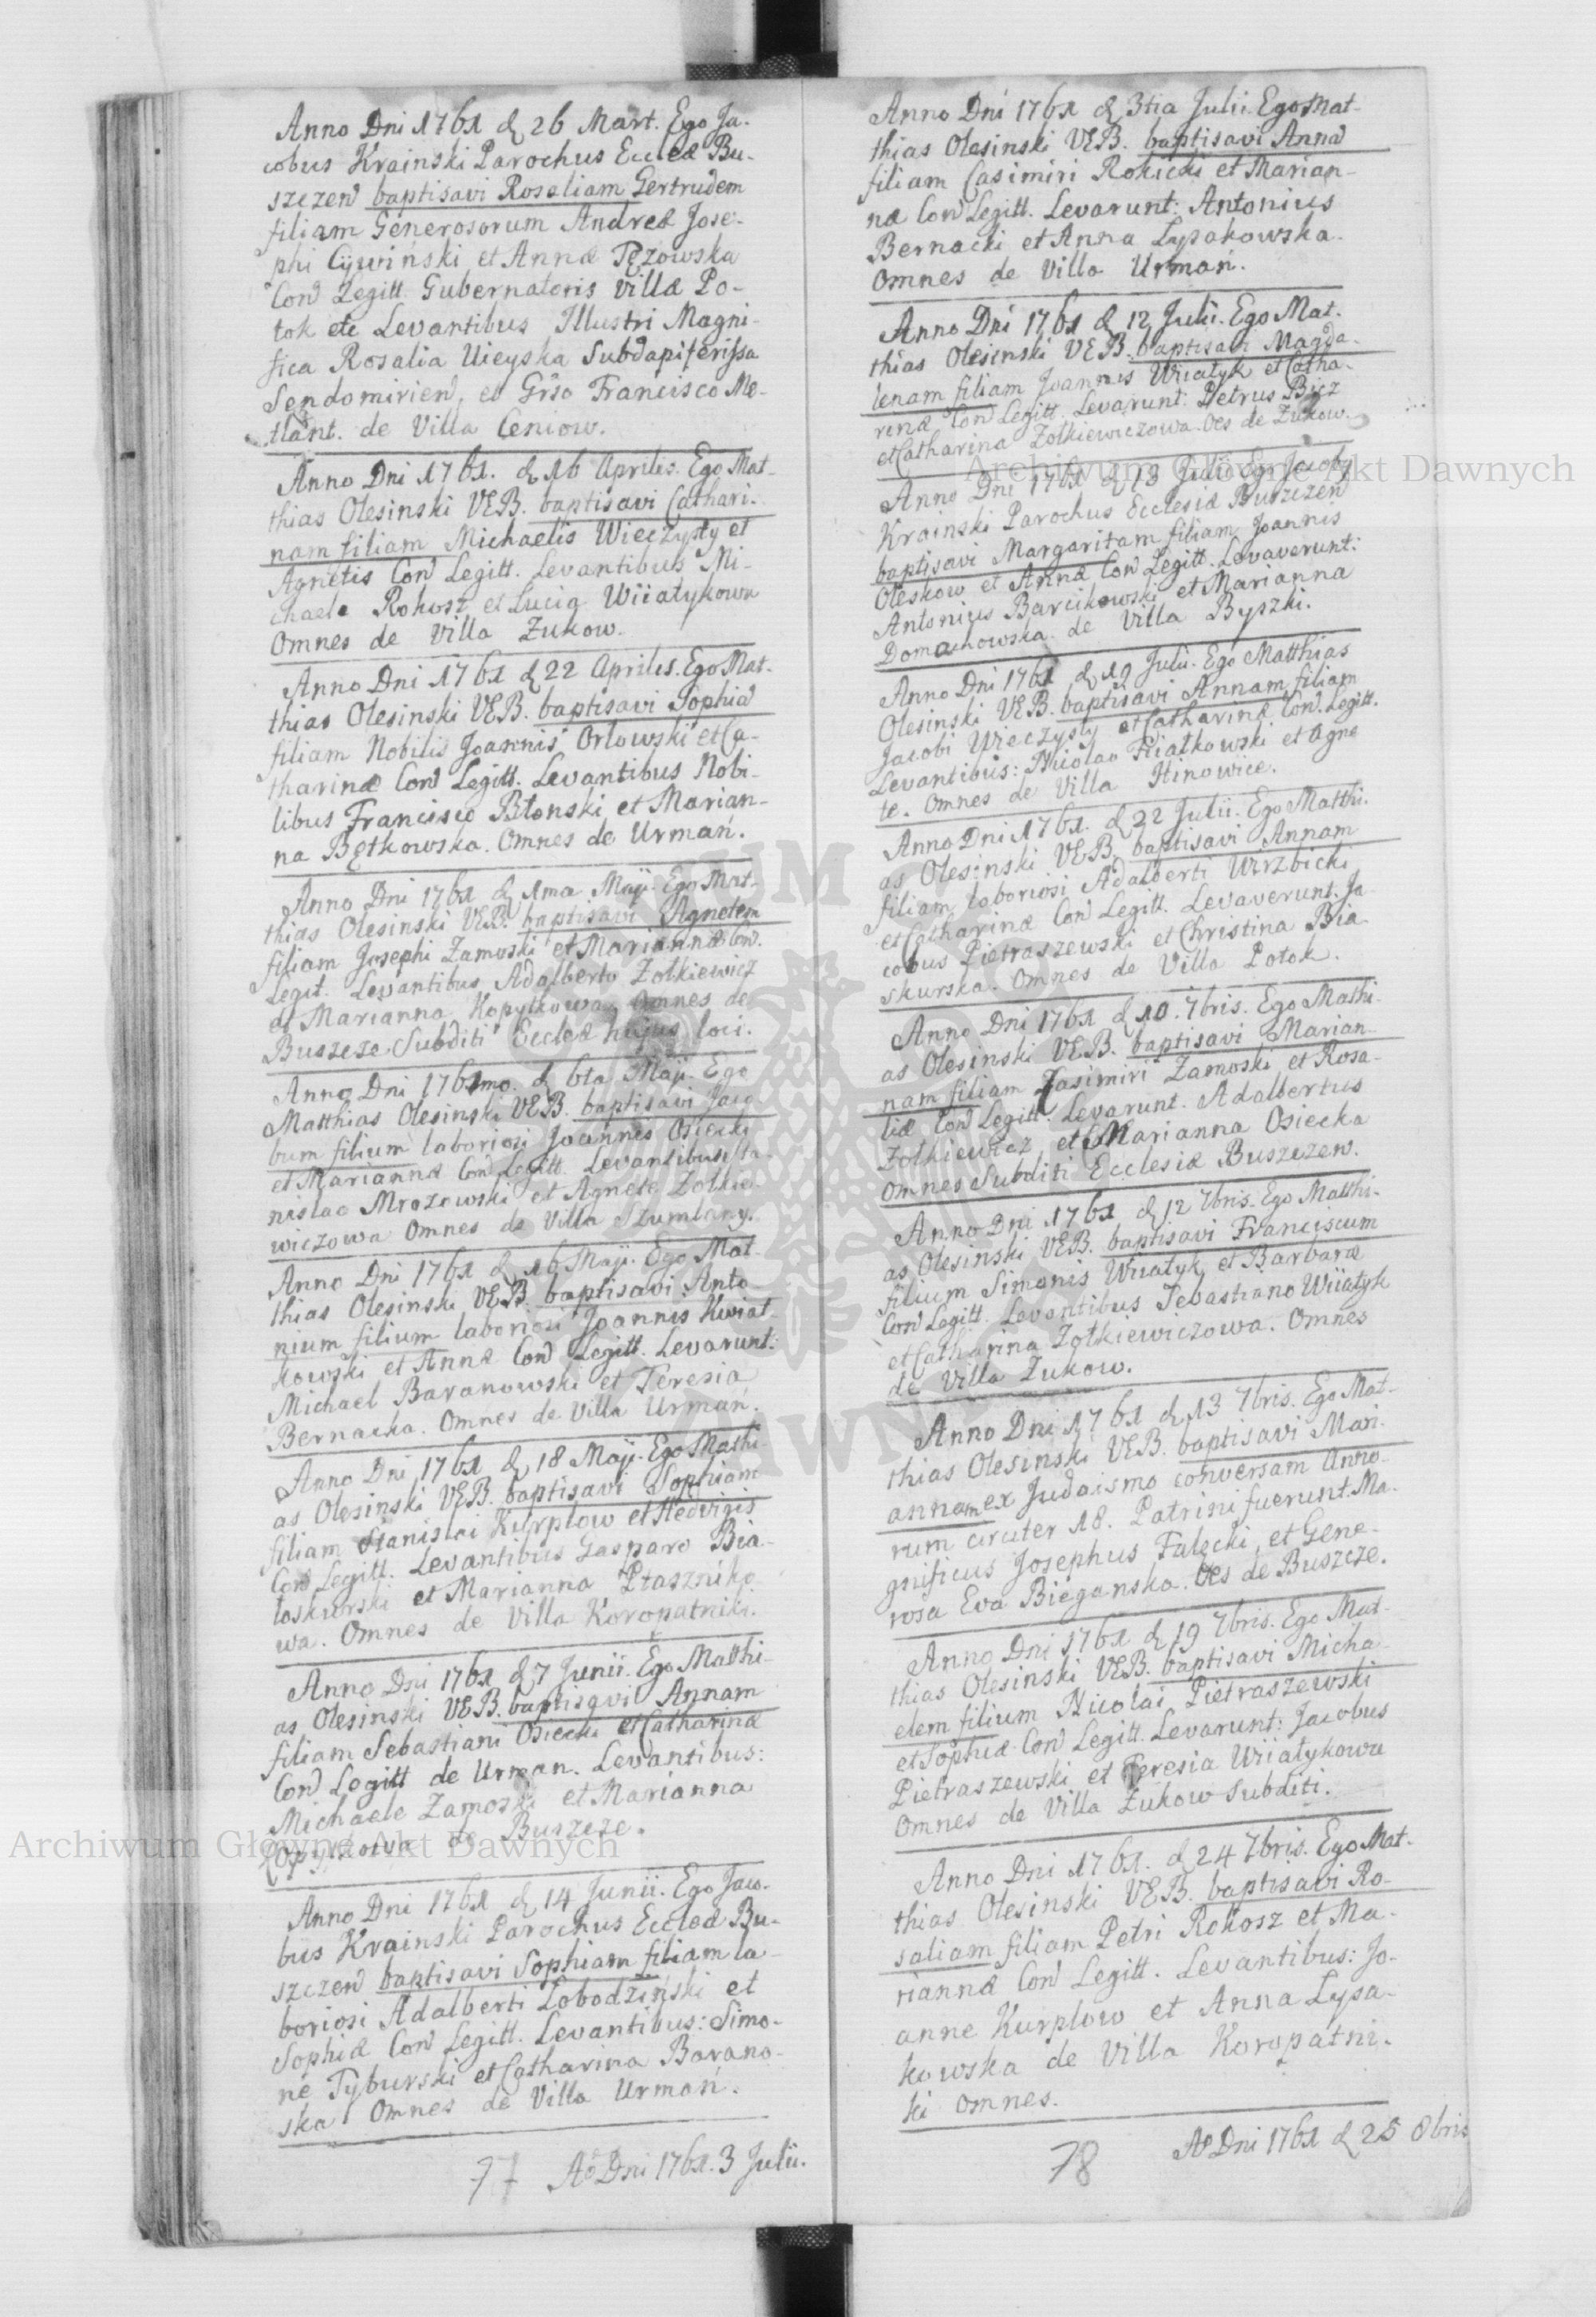 Anno Dni 1761 d 26 Mart. Ego Ja-
cobus Krainski Parochus Eccleæ Bu-
szczen baptisavi Rosaliam Gertrudem
filiam Generosorum Andreæ Jose-
phi Cywiński et Annæ Tęzowska
Con Legitt. Gubernatoris Villæ Po-
tok etc Levantibus Illustri Magni-
fica Rosalia Uieyska Subdapiferissa
Sendomirien, et Grso Francisco Me-
tlant. de Villa Ceniow.
Anno Dni 1761. d 16 Aprilis. Ego Mat-
thias Olesinski VEB. baptisavi Cathari-
nam filiam Michaelis Wieczysty et
Agnetis Con Legitt. Levantibus Mi-
chaele Rokosz et Lucia Wiiatykowa
Omnes de Villa Zukow.
Anno Dni 1761 d 22 Aprilis. Ego Mat-
thias Olesinski VEB. baptisavi Sophia
filiam Nobilis Joannis Orlowski et Ca-
tharinæ Con Legitt. Levantibus Nobi-
libus Francisco Blonski et Marian-
na Bętkowska. Omnes de Urmań.
Anno Dni 1761 d 1ma Maji. Ego Mat-
thias Olesinski VEB. baptisavi Agnetem
filiam Josephi Zamoski et Mariannæ Con.
Legit. Levantibus Adalberto Zolkiewicz
et Marianna Kopytkowa, Omnes de
Buszcze. Subditi Eccleæ hujus loci.
Anno Dni 1761mo. d 6ta Maji. Ego
Matthias Olesinski VEB. baptisavi Jaco
bum filium laboriosi Joannes Osiecki
et Mariannæ Con Legitt. Levantibus Sta-
nislao Mrozowski et Agnete Zolkie-
wiczowa Omnes de Villa Szumlany.
Anno Dni 1761 d 16 Maji. Ego Mat-
thias Olesinski VEB. baptisavi Anto-
nium filium laboriosi Joannis Kwiat-
kowski et Annæ Con Legitt. Levarunt:
Michael Baranowski et Teresia
Bernacka. Omnes de Villa Urmań.
Anno Dni 1761 d 18 Maji. Ego Mathi-
as Olesinski VEB. baptisavi Sophiam
filiam Stanislai Kurplow et Hedvigis
Con Legitt. Levantibus Gasparo Bia-
loskurski et Marianna Ptaszniko
wa. Omnes de Villa Koropatniki.
Anno Dni 1761 d 7 Junii. Ego Matthi-
as Olesinski VEB. baptisavi Annam
filiam Sebastiani Osiecki et Catharinæ
Con Legitt de Urman. Levantibus:
Michaele Zamoski et Marianna
Kopytkowa de Buszcze.
Anno Dni 1761 d 14 Junii. Ego Jaco-
bus Krainski Parochus Eccleæ Bu-
szczen baptisavi Sophiam filiam la-
boriosi Adalberti Lobodziński et
Sophiæ Con Legitt. Levantibus: Simo-
ne Tyburski et Catharina Barano-
ska Omnes de Villa Urmań.
77 Ao Dni 1761. 3 Julii.
Anno Dni 1761 d 3tia Julii. Ego Mat-
thias Olesinski VEB. baptisavi Anna
filiam Casimiri Rokicki et Marian-
næ Con Legitt. Levarunt: Antonius
Bernacki et Anna Lysakowska.
Omnes de Villa Urmań.
Anno Dni 1761 d 12 Julii. Ego Mat-
thias Olesinski VEB. baptisavi Magda-
lenam filiam Joannis Wiiatyk et Catha-
rinæ Con Legitt. Levarunt: Petrus Bicz
et Catharina Zolkiewiczowa. Oes de Zukow.
Anno Dni 1761 d 13 Julii Ego Jacoby
Krainski Parochus Ecclesiæ Buszczen
baptisavi Margaritam filiam Joannis
Oleskow et Annæ Con Legitt. Levaverunt:
Antonius Barcikowski et Marianna
Domachowska. de Villa Byszki.
Anno Dni 1761 d 19 Julii. Ego Matthias
Olesinski VEB. baptisavi Annam filiam
Jacobi Wieczysty et Catharinæ Con Legitt.
Levantibus: Nicolao Fiialkowski et Agne
te. Omnes de Villa Hinowice.
Anno Dni 1761. d 22 Julii. Ego Matthi-
as Olesinski VEB. baptisavi Annam
filiam laboriosi Adalberti Wirzbicki
et Catharinæ Con Legitt. Levaverunt: Ja-
cobus Pietraszewski et Christina Bia-
skurska. Omnes de Villa Potok.
Anno Dni 1761 d 10. 7bris. Ego Mathi-
as Olesinski VEB. baptisavi Marian-
nam filiam Casimiri Zamoski et Rosa-
liæ Con Legitt. Levarunt. Adalbertus
Zolkiewicz et Marianna Osiecka
Omnes Subditi Ecclesiæ Buszczen.
Anno Dni 1761 d 12 7bris. Ego Matthi-
as Olesinski VEB. baptisavi Franciscum
filium Simonis Wiiatyk et Barbaræ
Con Legitt. Levantibus Sebastiano Wiiatyk
et Catharina Zolkiewiczowa. Omnes
de Villa Zukow.
Anno Dni 1761 d 13 7bris. Ego Mat-
thias Olesinski VEB. baptisavi Mari-
annam ex Judaismo conversam Anno-
rum circiter 18. Patrini fuerunt. Ma-
gnificus Josephus Falęcki, et Gene-
rosa Eva Bieganska. Oes de Buszcze.
Anno Dni 1761 d 19 7bris. Ego Mat-
thias Olesinski VEB. baptisavi Micha-
elem filium Nicolai Pietraszewski
et Sophiæ Con Legitt. Levarunt: Jacobus
Pietraszewski et Teresia Wiiatykowa
Omnes de Villa Zukow Subditi.
Anno Dni 1761. d 24 7bris. Ego Mat-
thias Olesinski VEB. baptisavi Ro-
saliam filiam Petri Rokosz et Ma-
riannæ Con Legitt. Levantibus: Jo-
anne Kurplow et Anna Lysa-
kowska de Villa Koropatni-
ki Omnes.
78 Ao Dni 1761 d 25 8bris
Archiwum Główne Akt Dawnych
Archiwum Główne Akt Dawnych